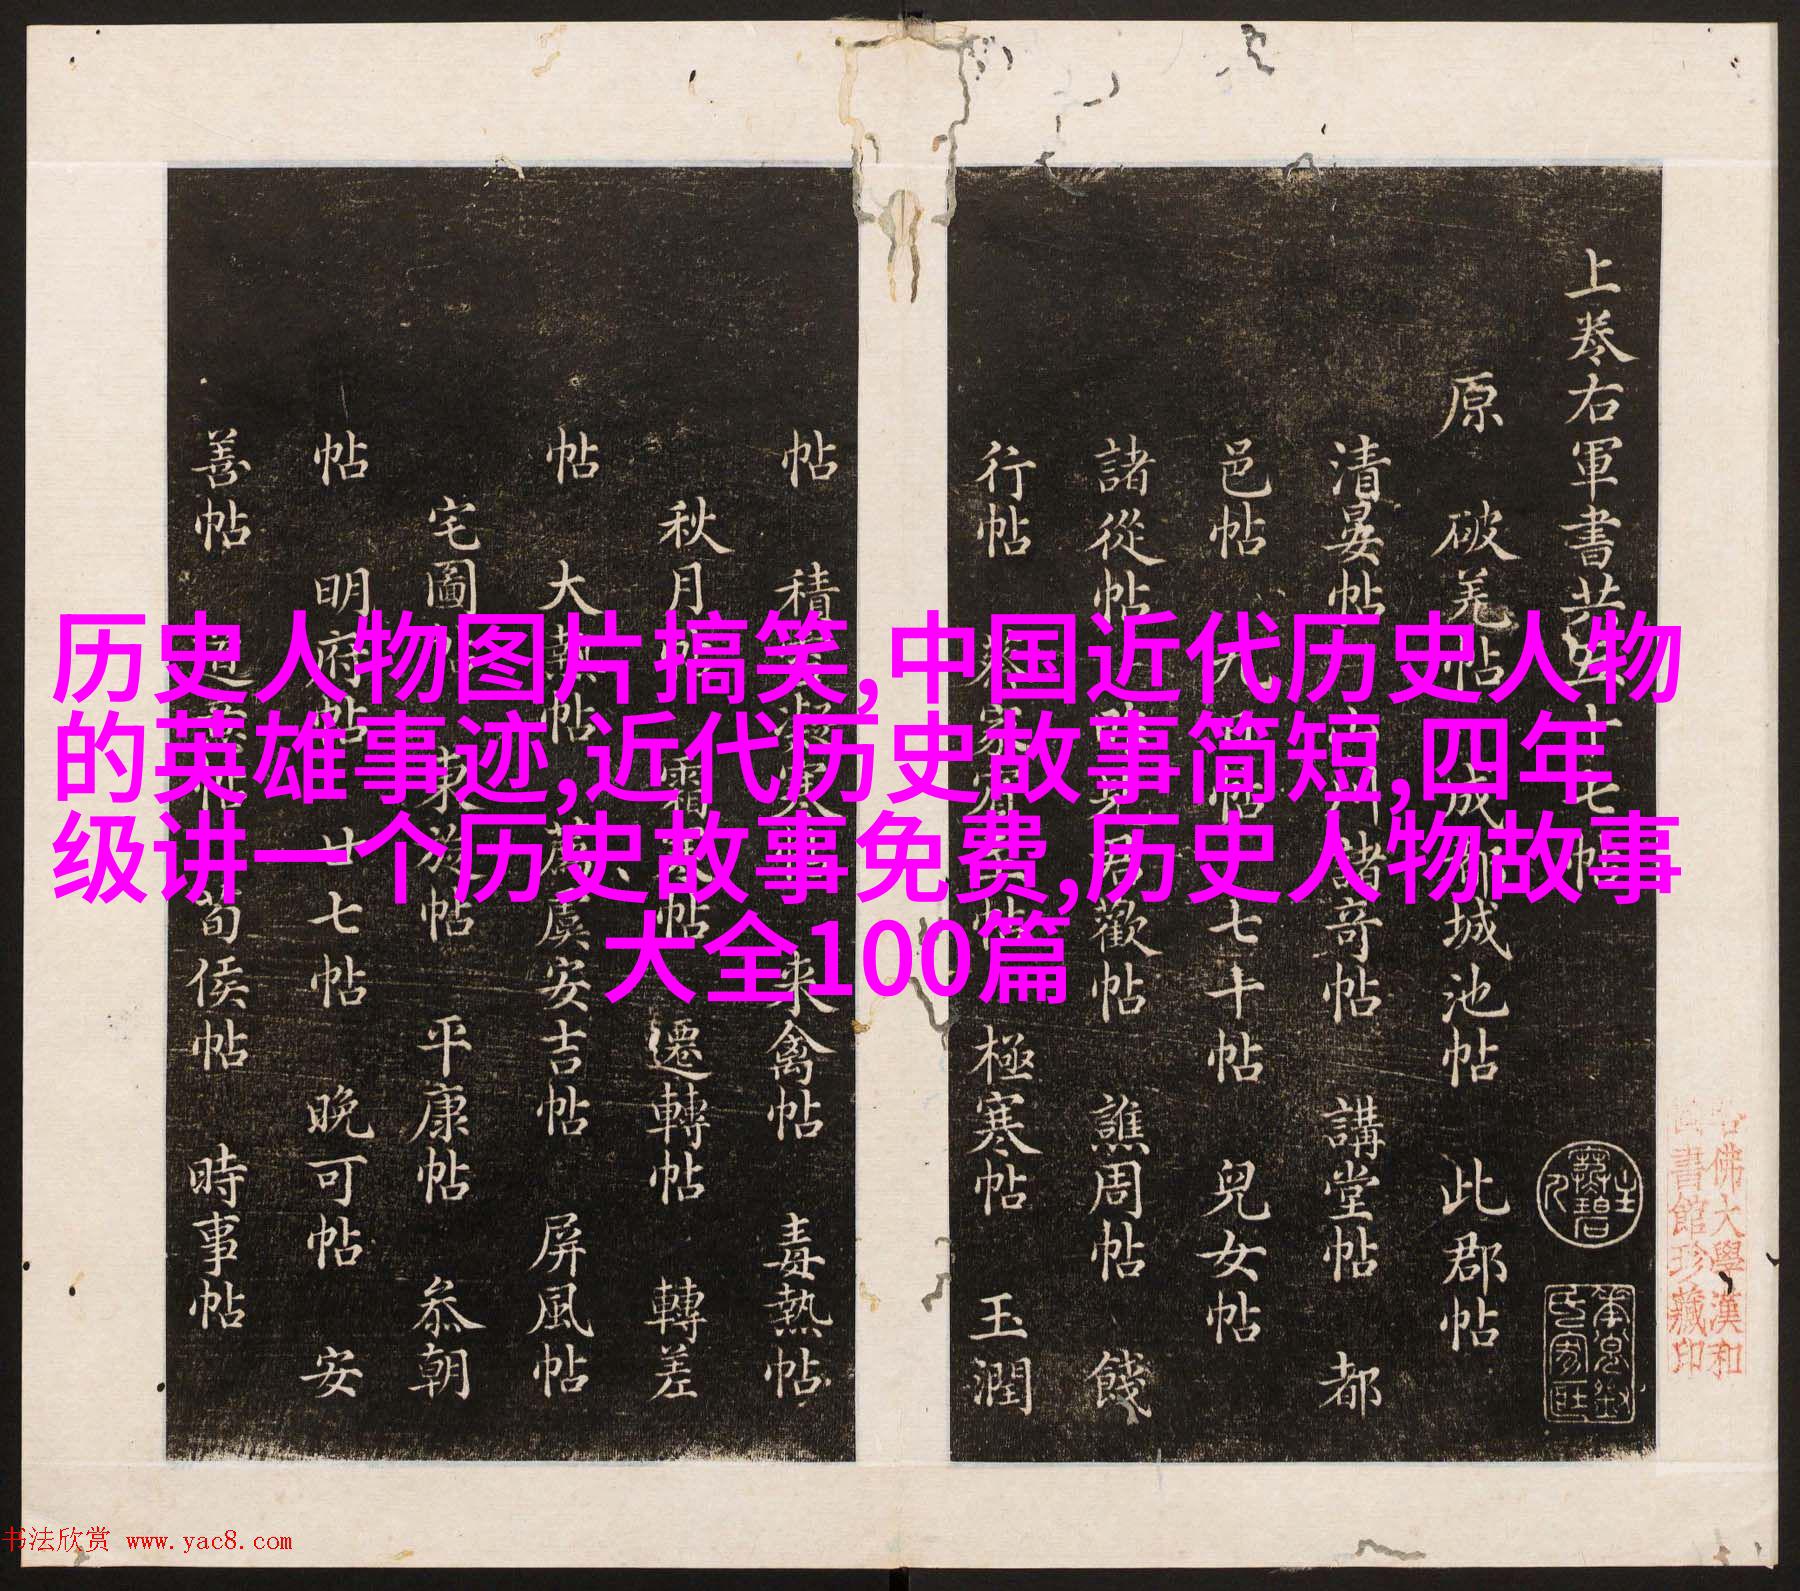 历史人物图片搞笑,中国近代历史人物
的英雄事迹,近代历史故事简短,四年
级讲一个历史故事免费,历史人物故事
大全100篇
上卷右軍書共五十七帖
原 破羌帖 成都城池帖 此郡帖
清晏帖 諸奇帖 講堂帖 都
邑帖 七十帖 兒女帖
諸從帖 歡帖 譙周帖 餞
行帖 極寒帖 玉潤
帖 積 凝寒帖 来禽帖 毒熱帖
秋月帖 霜 帖 遷轉帖 轉差
帖 大 帖 虞安吉帖 屏風帖
宅圖帖 東旋帖 平康帖 叅朝
帖 明府帖 廿七帖 晚可帖 安
善帖 帖 荀侯帖 時事帖
佛大學漢和
書館珍藏印
书法欣赏 www.yac8.com